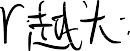 r越大: